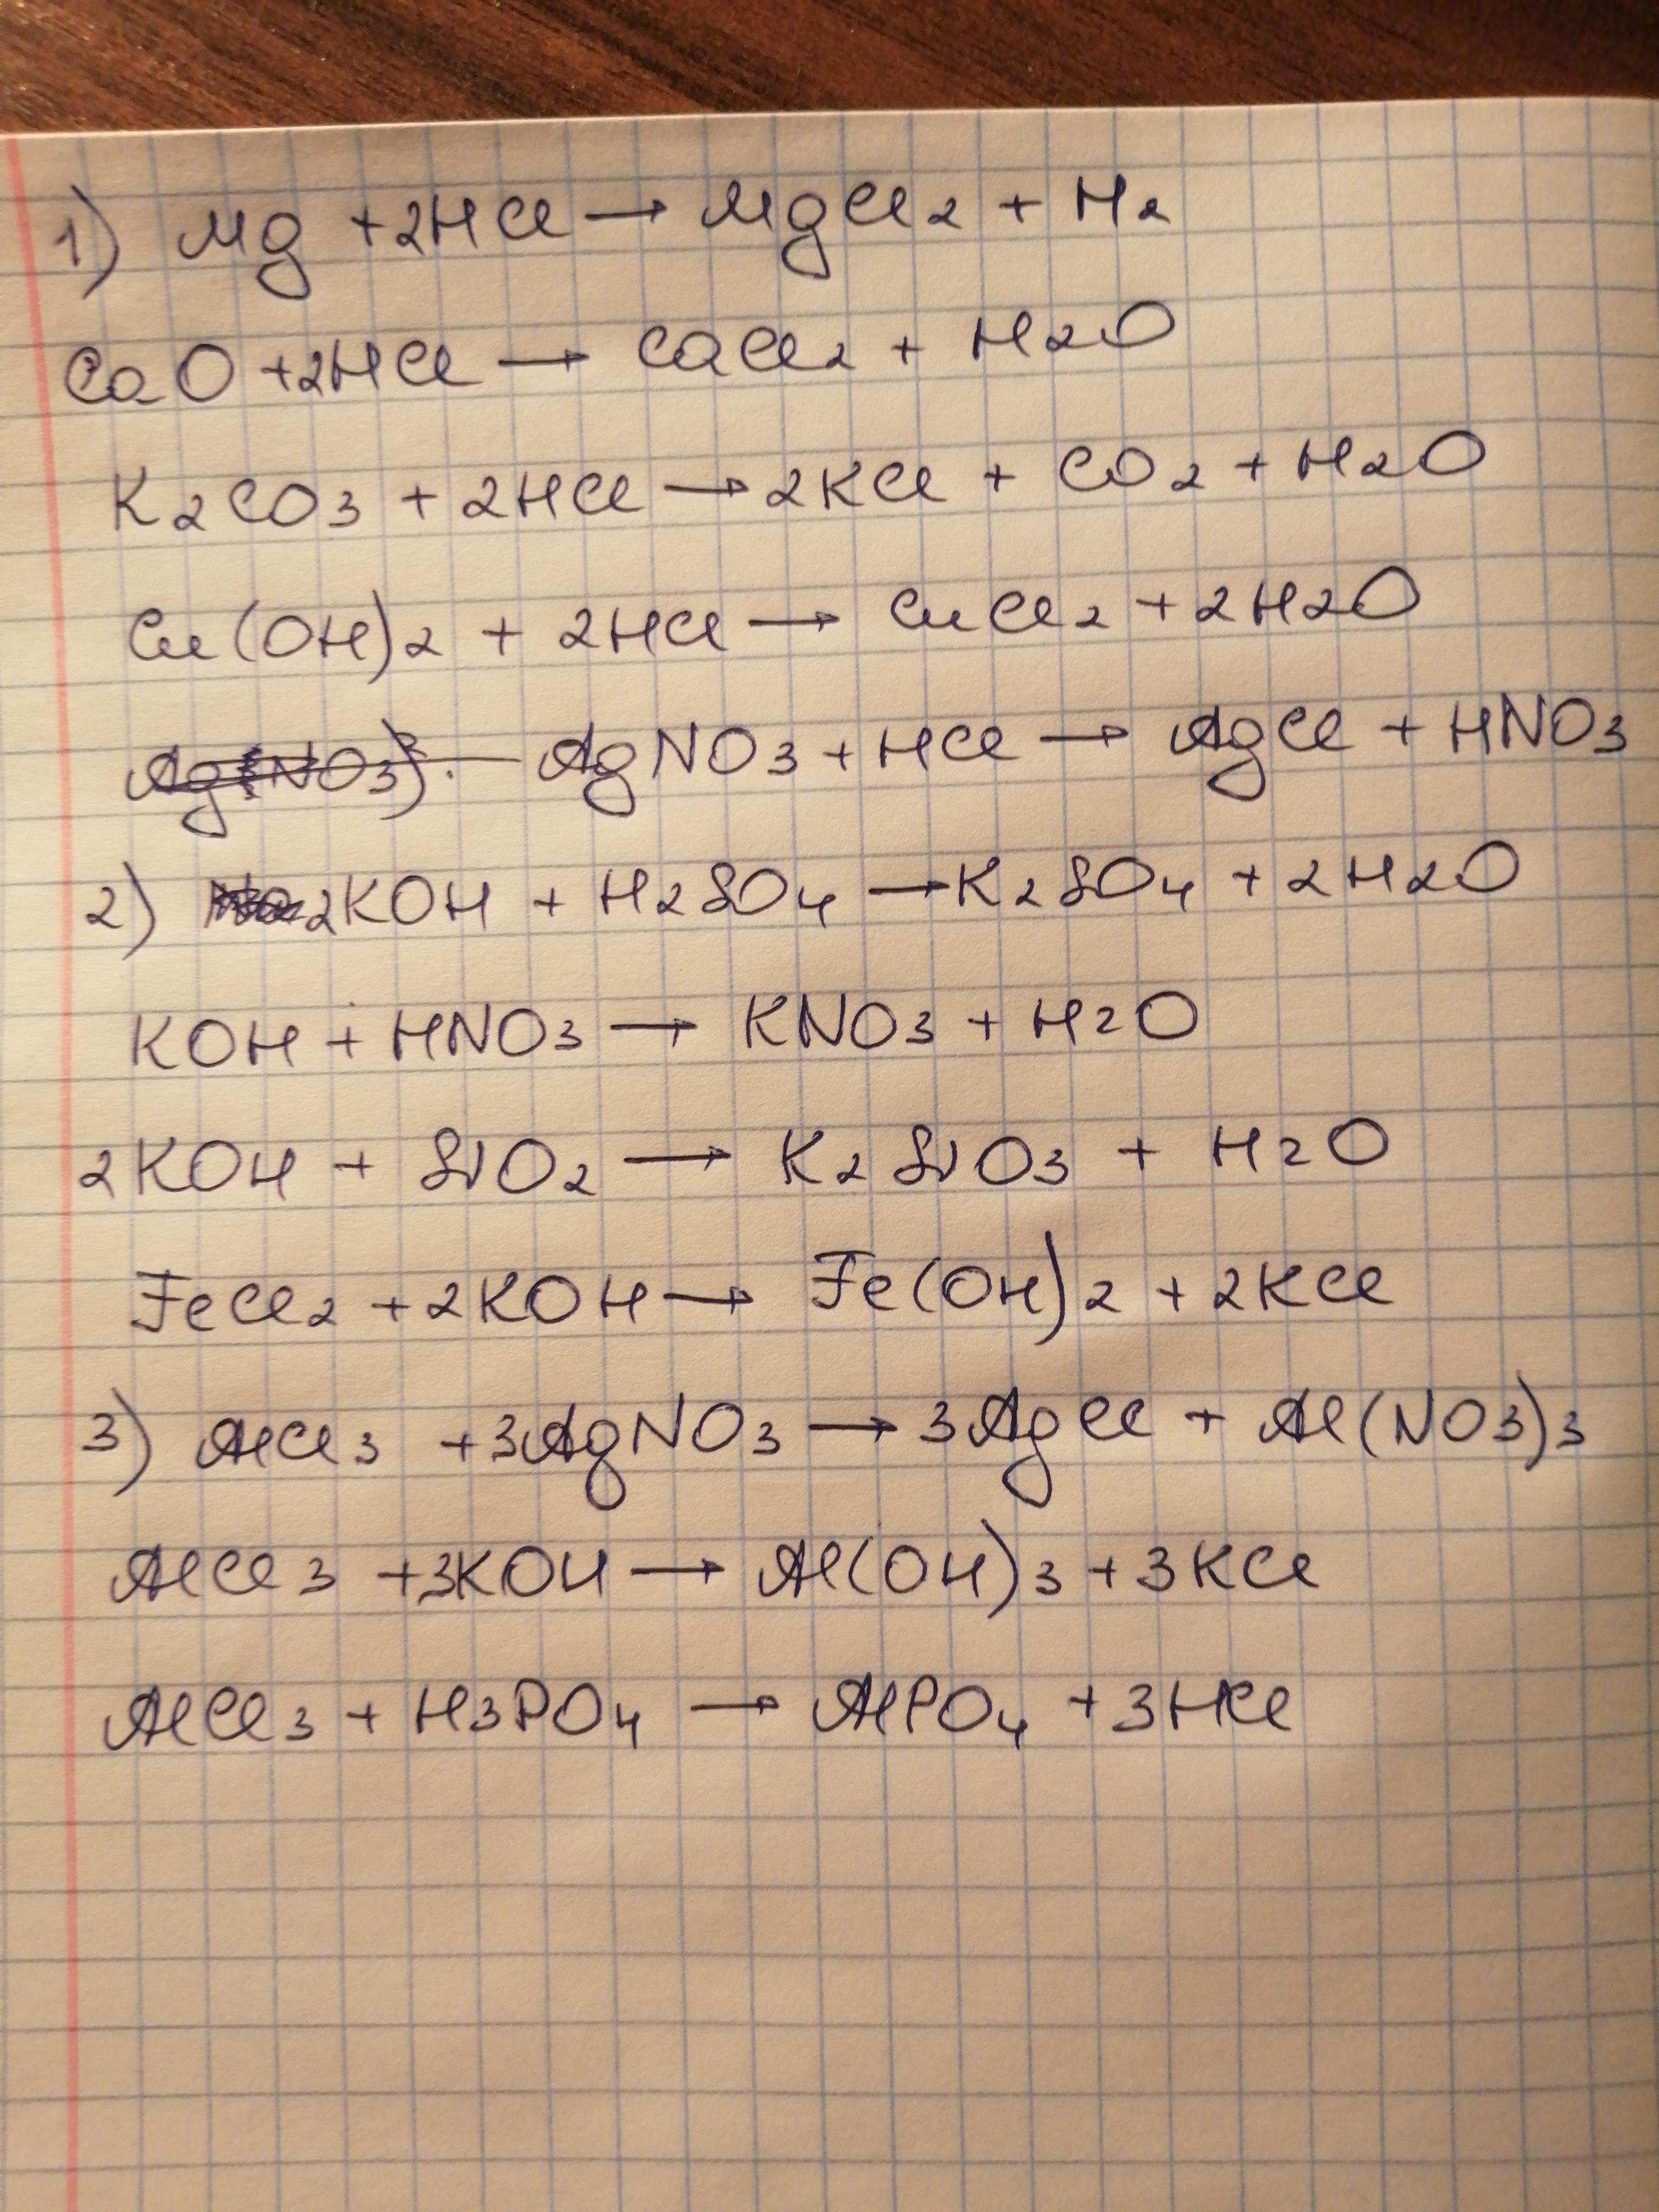 1) Mg + 2HCl → MgCl2 + H2
CaO + 2HCl → CaCl2 + H2O
K2CO3 + 2HCl → 2KCl + CO2 + H2O
Cu(OH)2 + 2HCl → CuCl2 + 2H2O
AgNO3 + HCl → AgCl + HNO3
2) 2KOH + H2SO4 → K2SO4 + 2H2O
KOH + HNO3 → KNO3 + H2O
2KOH + SiO2 → K2SiO3 + H2O
FeCl2 + 2KOH → Fe(OH)2 + 2KCl
3) AlCl3 + 3AgNO3 → 3AgCl + Al(NO3)3
AlCl3 + 3KOH → Al(OH)3 + 3KCl
AlCl3 + H3PO4 → AlPO4 + 3HCl